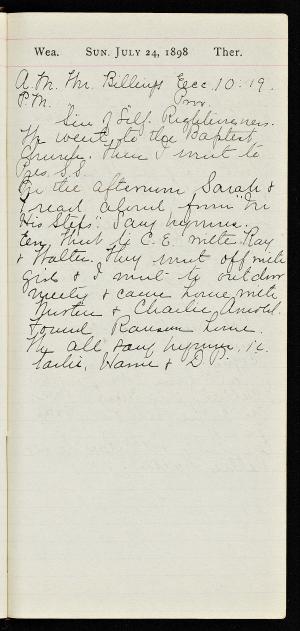 Wea. SUN. JULY 24, 1898 Ther.
A.M. Mr. Billings Ecc. 10:19.
P.M. Prov.
Sin of Self-Righteousness.
We went to the Baptist
Church. Then I went to
Pres. S.S.
In the afternoon Sarah &
I read aloud from "In
His Steps". Sang hymns.
Eev. Went to C.E. with Ray
& Walter. They went off with
girls & I went to outdoor
meeting & came home with
& Charlie Arnold.
Found Ransom home.
We all sang hymns, i.e.
Sarah, & D.P.